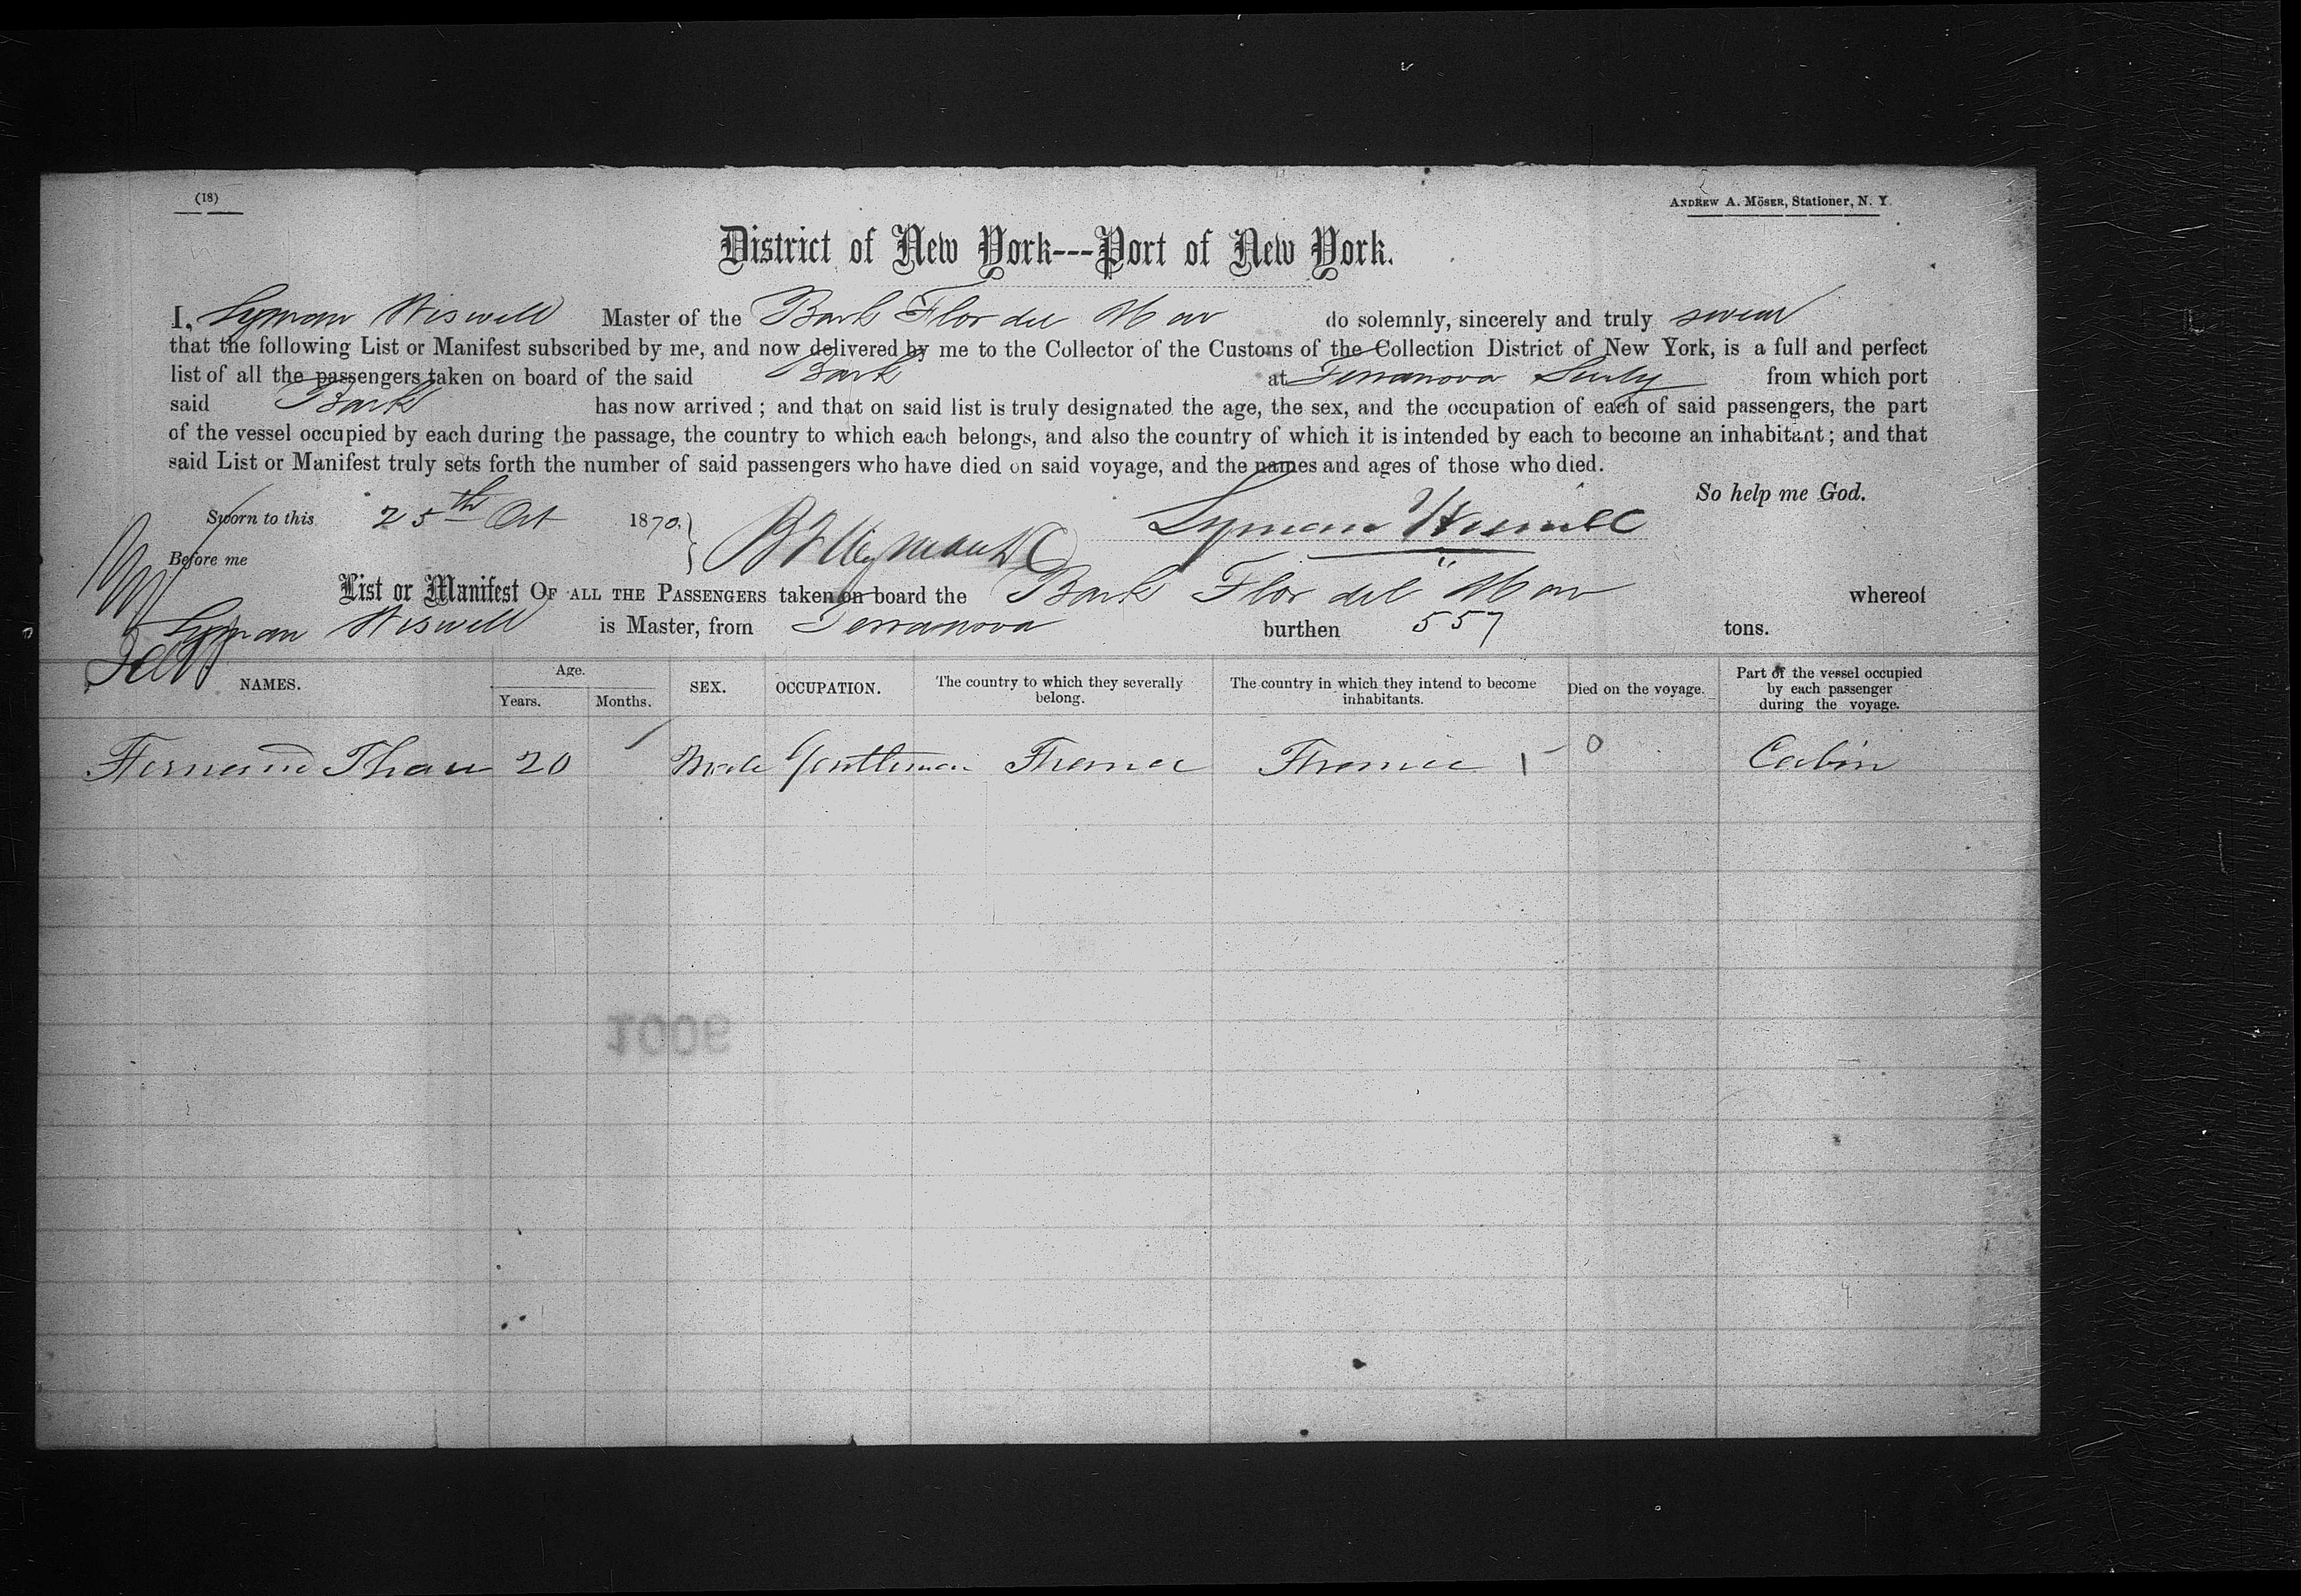 (18)
ANDREW A. MÖSER, Stationer, N. Y.
District of New York---Port of New York.
I, Lyman Wiswell Master of the Bark Flor del Mar do solemnly, sincerely and truly swear
that the following List or Manifest subscribed by me, and now delivered by me to the Collector of the Customs of the Collection District of New York, is a full and perfect
list of all the passengers taken on board of the said Bark at Terranova Sicily from which port
said Bark has now arrived; and that on said list is truly designated the age, the sex, and the occupation of each of said passengers, the part
of the vessel occupied by each during the passage, the country to which each belongs, and also the country of which it is intended by each to become an inhabitant; and that
said List or Manifest truly sets forth the number of said passengers who have died on said voyage, and the names and ages of those who died.
So help me God.
Sworn to this 25th Oct 1870. Lyman Wiswell
Before me
List or Manifest OF ALL THE PASSENGERS taken on board the Bark Flor del Mar whereof
Lyman Wiswell is Master, from Terranova burthen 557 tons.
NAMES. Age. Years. Months. SEX. OCCUPATION. The country to which they severally belong. The country in which they intend to become inhabitants. Died on the voyage. Part of the vessel occupied by each passenger during the voyage.
Fernand Thau 20 Male Gentleman France France 1 0 Cabin
1006